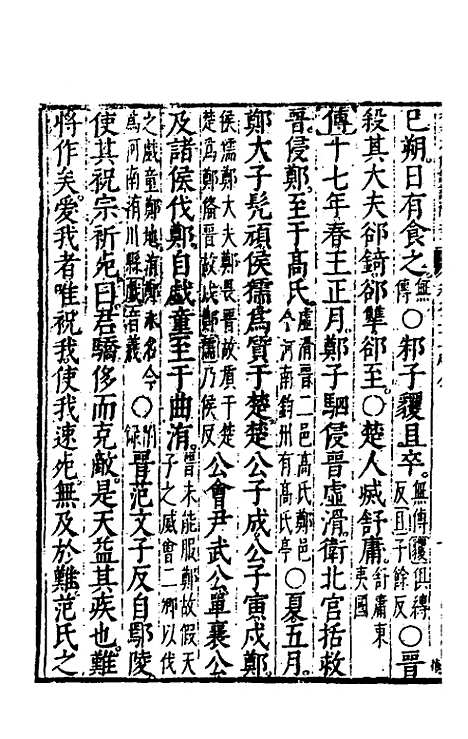 巳朔日有食之無傳○邾子貜且卒無傳貜俱縛反且子餘反○晉
殺其大夫郤錡郤犨郤至○楚人滅舒庸舒庸東夷國
傳十七年春王正月鄭子駟侵晉虛滑衛北宮括救
晉侵鄭至于髙氏虛滑晉二邑髙氏鄭邑今河南鈞州有髙氏亭○夏五月
鄭大子髠頑侯獳爲質于楚楚公子成公子寅戍鄭
侯獳鄭大夫鄭畏晉故質于楚楚爲鄭俻晉故戍鄭獳乃侯反公會尹武公單襄公
及諸侯伐鄭自戲童至于曲洧晉未能服鄭故假天子之威會二卿以伐
之戲童鄭地洧鄭水名今爲河南洧川縣戲音羲○晉范文子反自鄢陵
使其祝宗祈死曰君驕侈而克敵是天益其疾也難
將作矣愛我者唯祝我使我速死無及於難范氏之